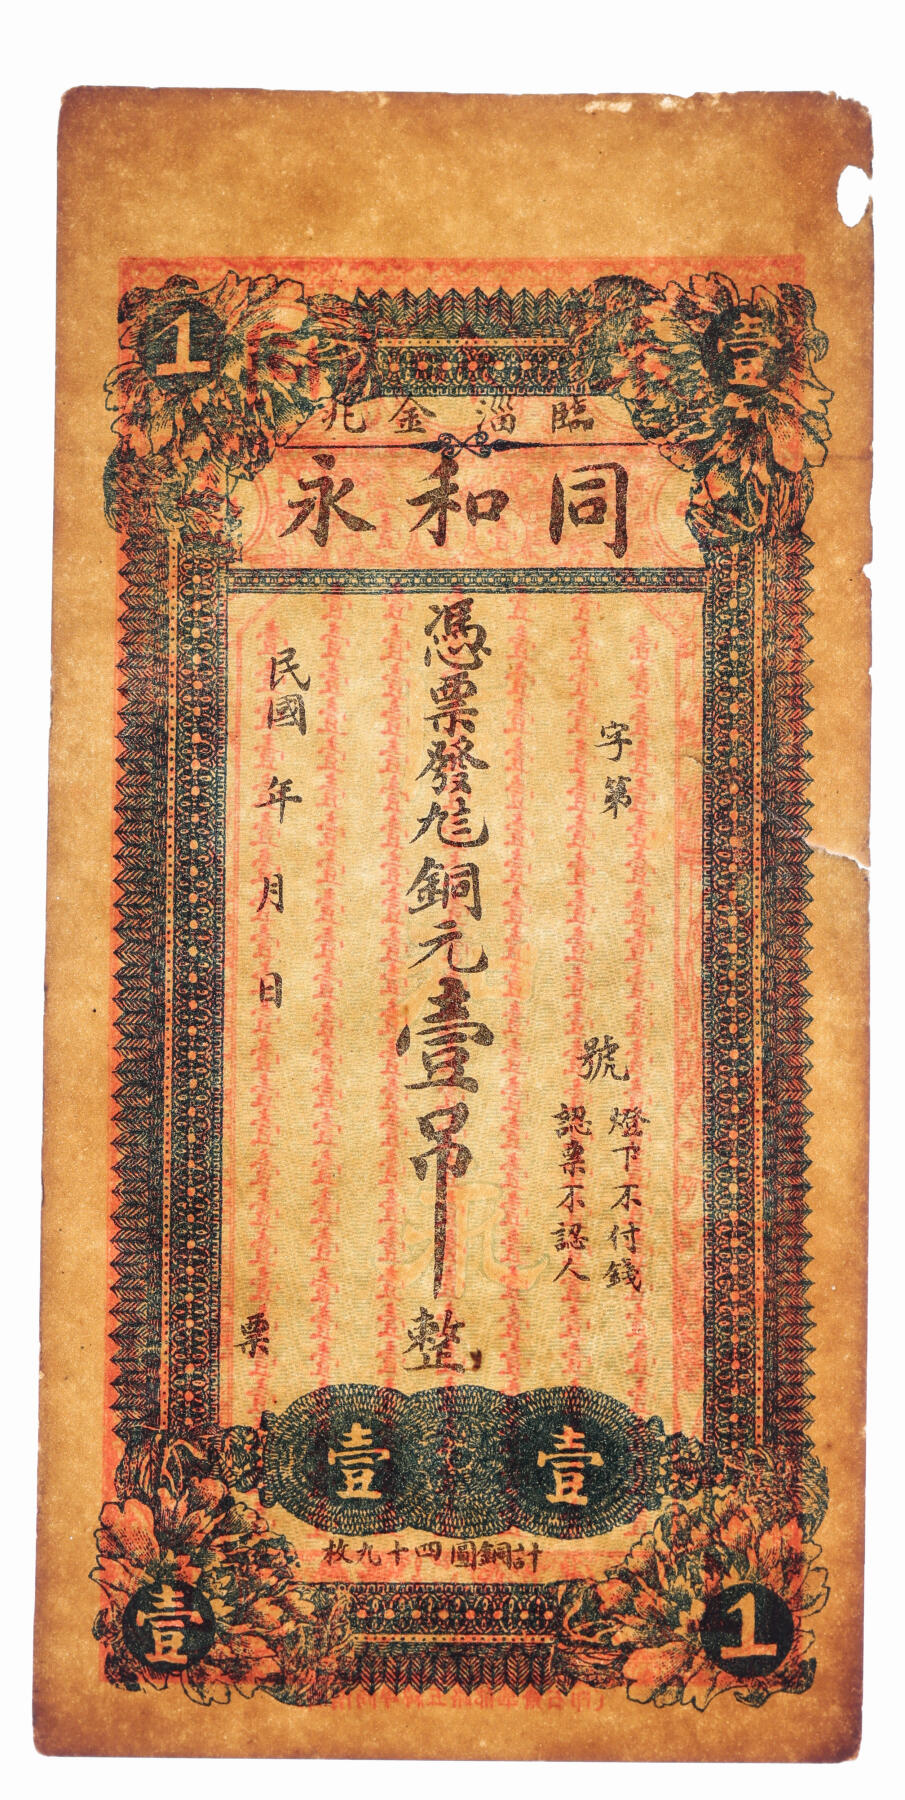 1
壹
臨淄金兆
同和永
字第　號
燈下不付錢
認票不認人
憑票發銅元壹吊整
民國　年　月　日
票
壹
壹
計銅圓四十九枚
壹
1